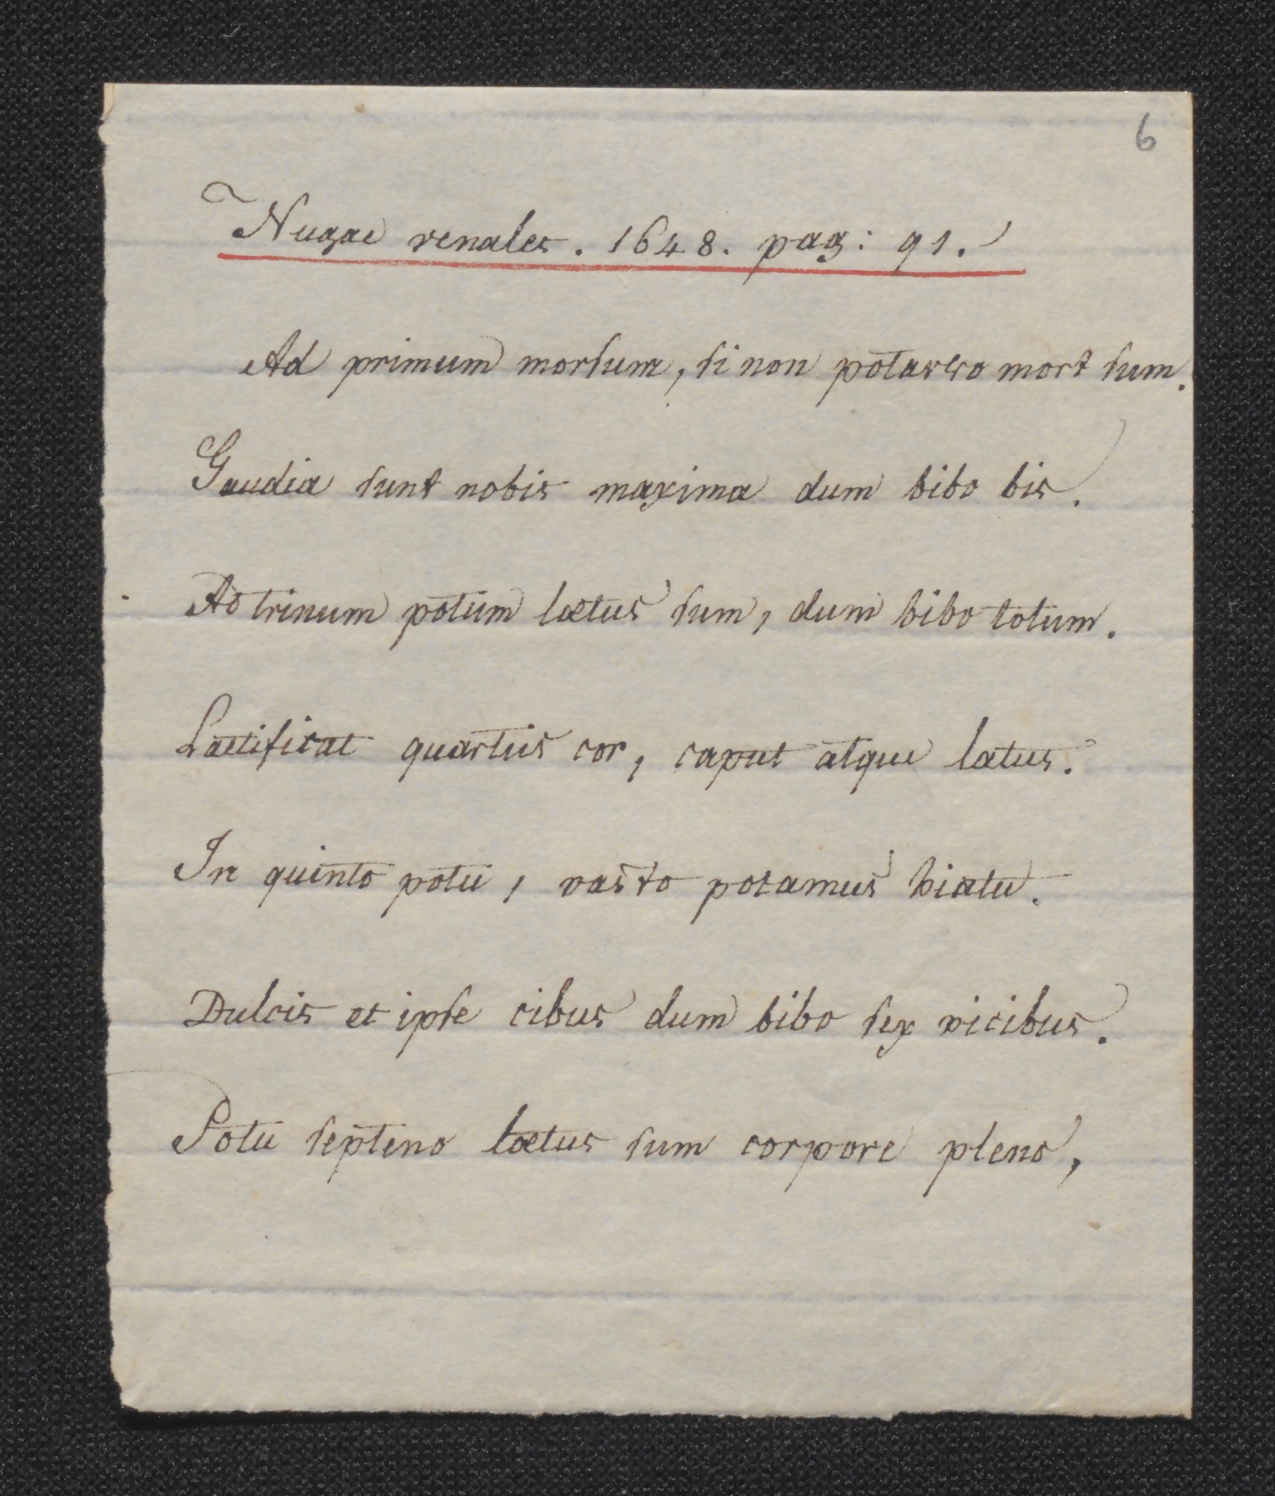 6
Nugae venales. 1648. pag: 91.
Ad primum morsum, si non potavero mort sum.
Gaudia sunt nobis maxima dum bibo bis.
Ad trinum potum lætus sum, dum bibo totum.
Laetificat quartus cor, caput atque latus.
In quinto potu, vasto potamus hiatu.
Dulcis et ipse cibus dum bibo sex vicibus.
Potu septeno lætus sum corpore pleno,